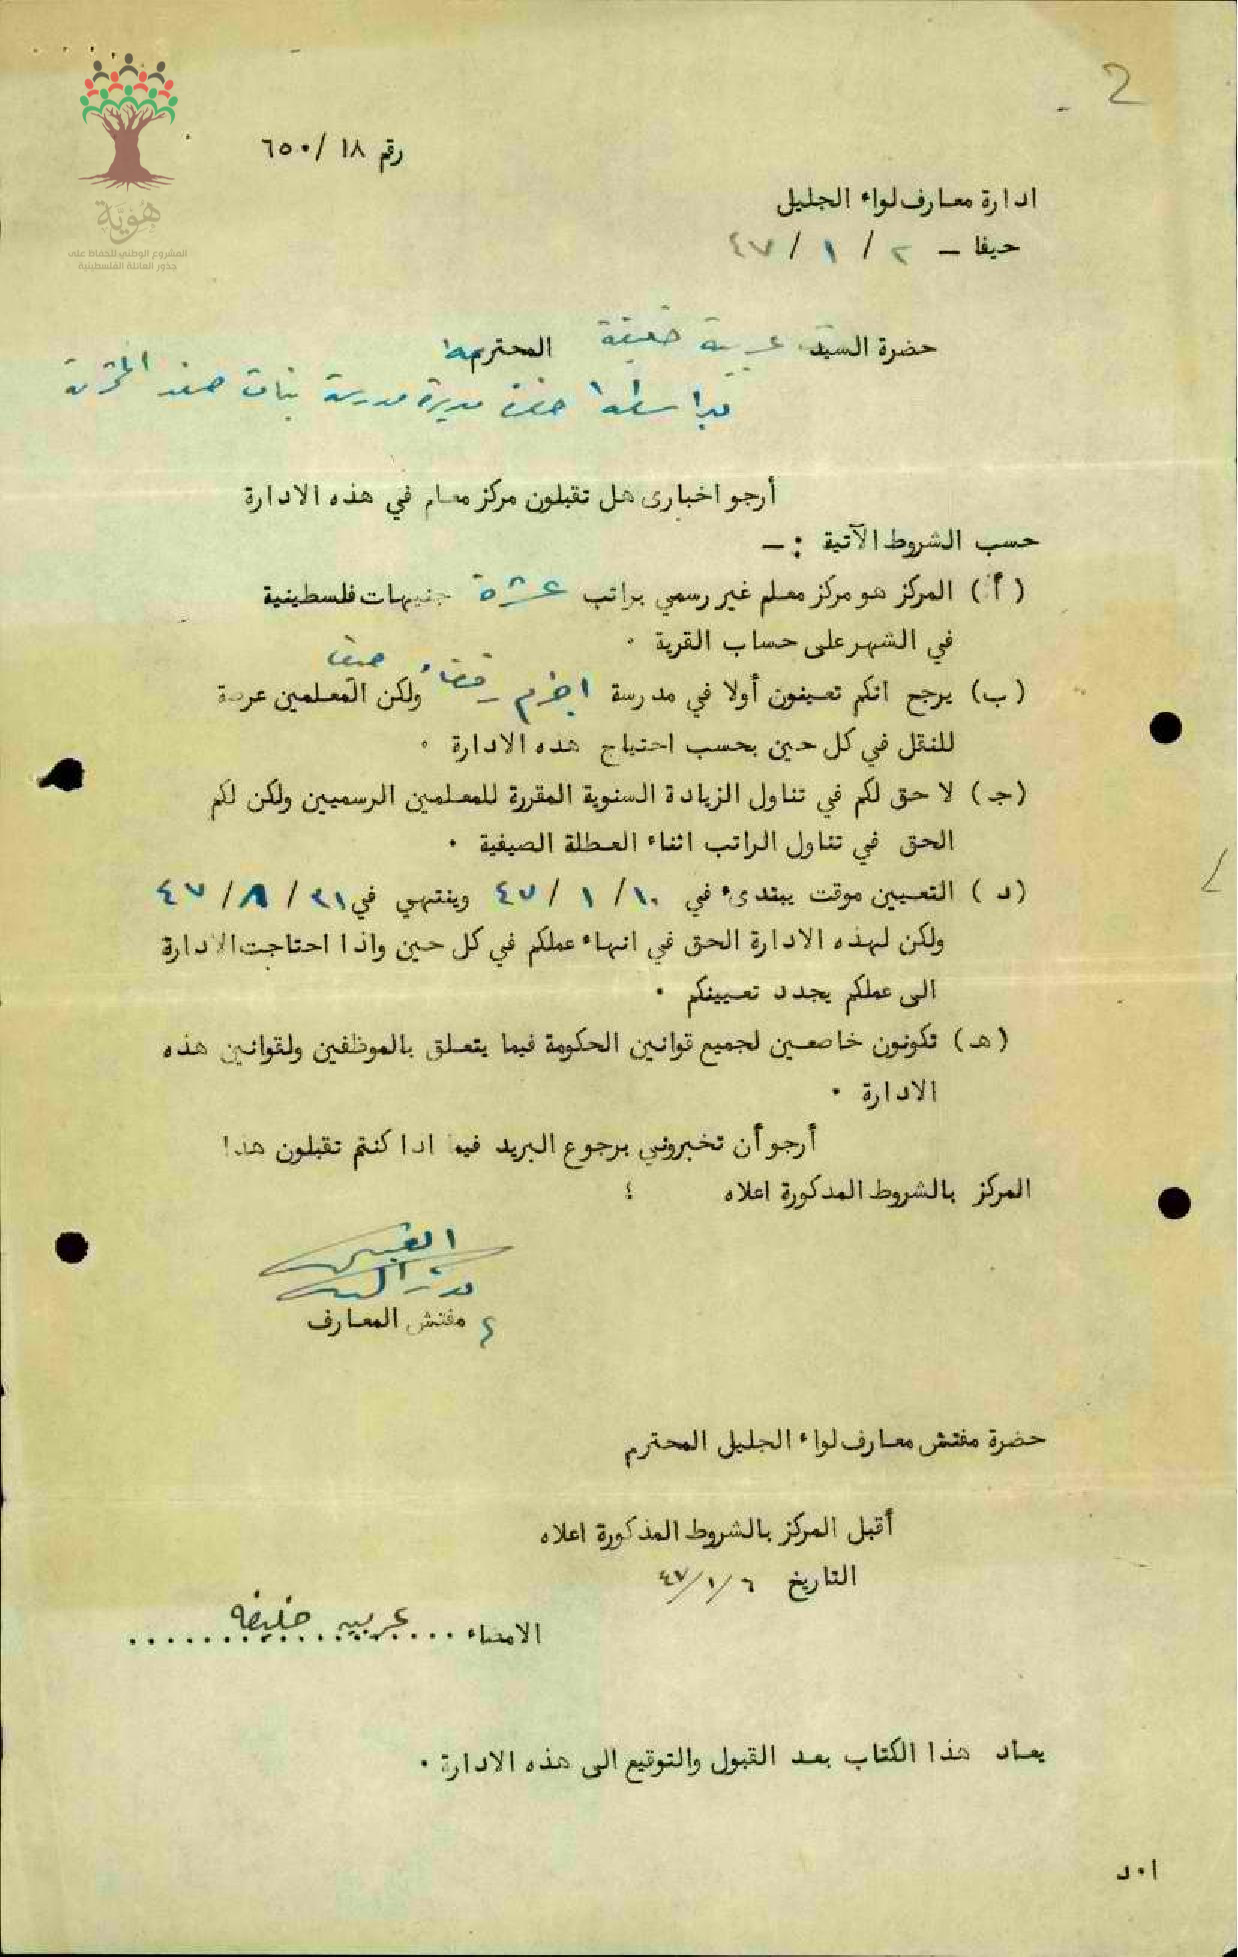 2
هُويّة
المشروع الوطني للحفاظ على
جذور العائلة الفلسطينية
رقم ١٨ / ٦٥٠
ادارة معارف لواء الجليل
حيفا – ٢ / ١ / ٤٧
حضرة السيدة عربية خليفة المحترمة
بواسطة حضرة مديرة مدرسة بنات صفد المحترمة
أرجو اخبارى هل تقبلون مركز معلم في هذه الادارة
حسب الشروط الآتية : –
(أ) المركز هو مركز معلم غير رسمي براتب عشرة جنيهات فلسطينية
في الشهر على حساب القرية ٠
(ب) يرجح انكم تعينون أولا في مدرسة اجزم قضاء حيفا ولكن المعلمين عرضة
للنقل في كل حين بحسب احتياج هذه الادارة ٠
(جـ) لا حق لكم في تناول الزيادة السنوية المقررة للمعلمين الرسميين ولكن لكم
الحق في تناول الراتب اثناء العطلة الصيفية ٠
(د) التعيين موقت يبتدىء في ١٠ / ١ / ٤٧ وينتهي في ٣١ / ٨ / ٤٧
ولكن لهذه الادارة الحق في انهاء عملكم في كل حين واذا احتاجت الادارة
الى عملكم يجدد تعيينكم ٠
(هـ) تكونون خاضعين لجميع قوانين الحكومة فيما يتعلق بالموظفين ولقوانين هذه
الادارة ٠
أرجو أن تخبروني برجوع البريد فيما اذا كنتم تقبلون هذا
المركز بالشروط المذكورة اعلاه ؛
مفتش المعارف
حضرة مفتش معارف لواء الجليل المحترم
أقبل المركز بالشروط المذكورة اعلاه
التاريخ ٦ / ١ / ٤٧
الامضاء .... عربيه خليفه ....
يعاد هذا الكتاب بعد القبول والتوقيع الى هذه الادارة ٠
ا٠د